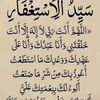 سَيِّدُ الْاِسْتِغْفَارِ
«اللَّهُمَّ أَنْتَ رَبِّي لَا إِلَهَ إِلَّا أَنْتَ
خَلَقْتَنِي وَأَنَا عَبْدُكَ وَأَنَا عَلَى
عَهْدِكَ وَوَعْدِكَ مَا اسْتَطَعْتُ
أَعُوذُ بِكَ مِنْ شَرِّ مَا صَنَعْتُ
أَبُوءُ لَكَ بِنِعْمَتِكَ